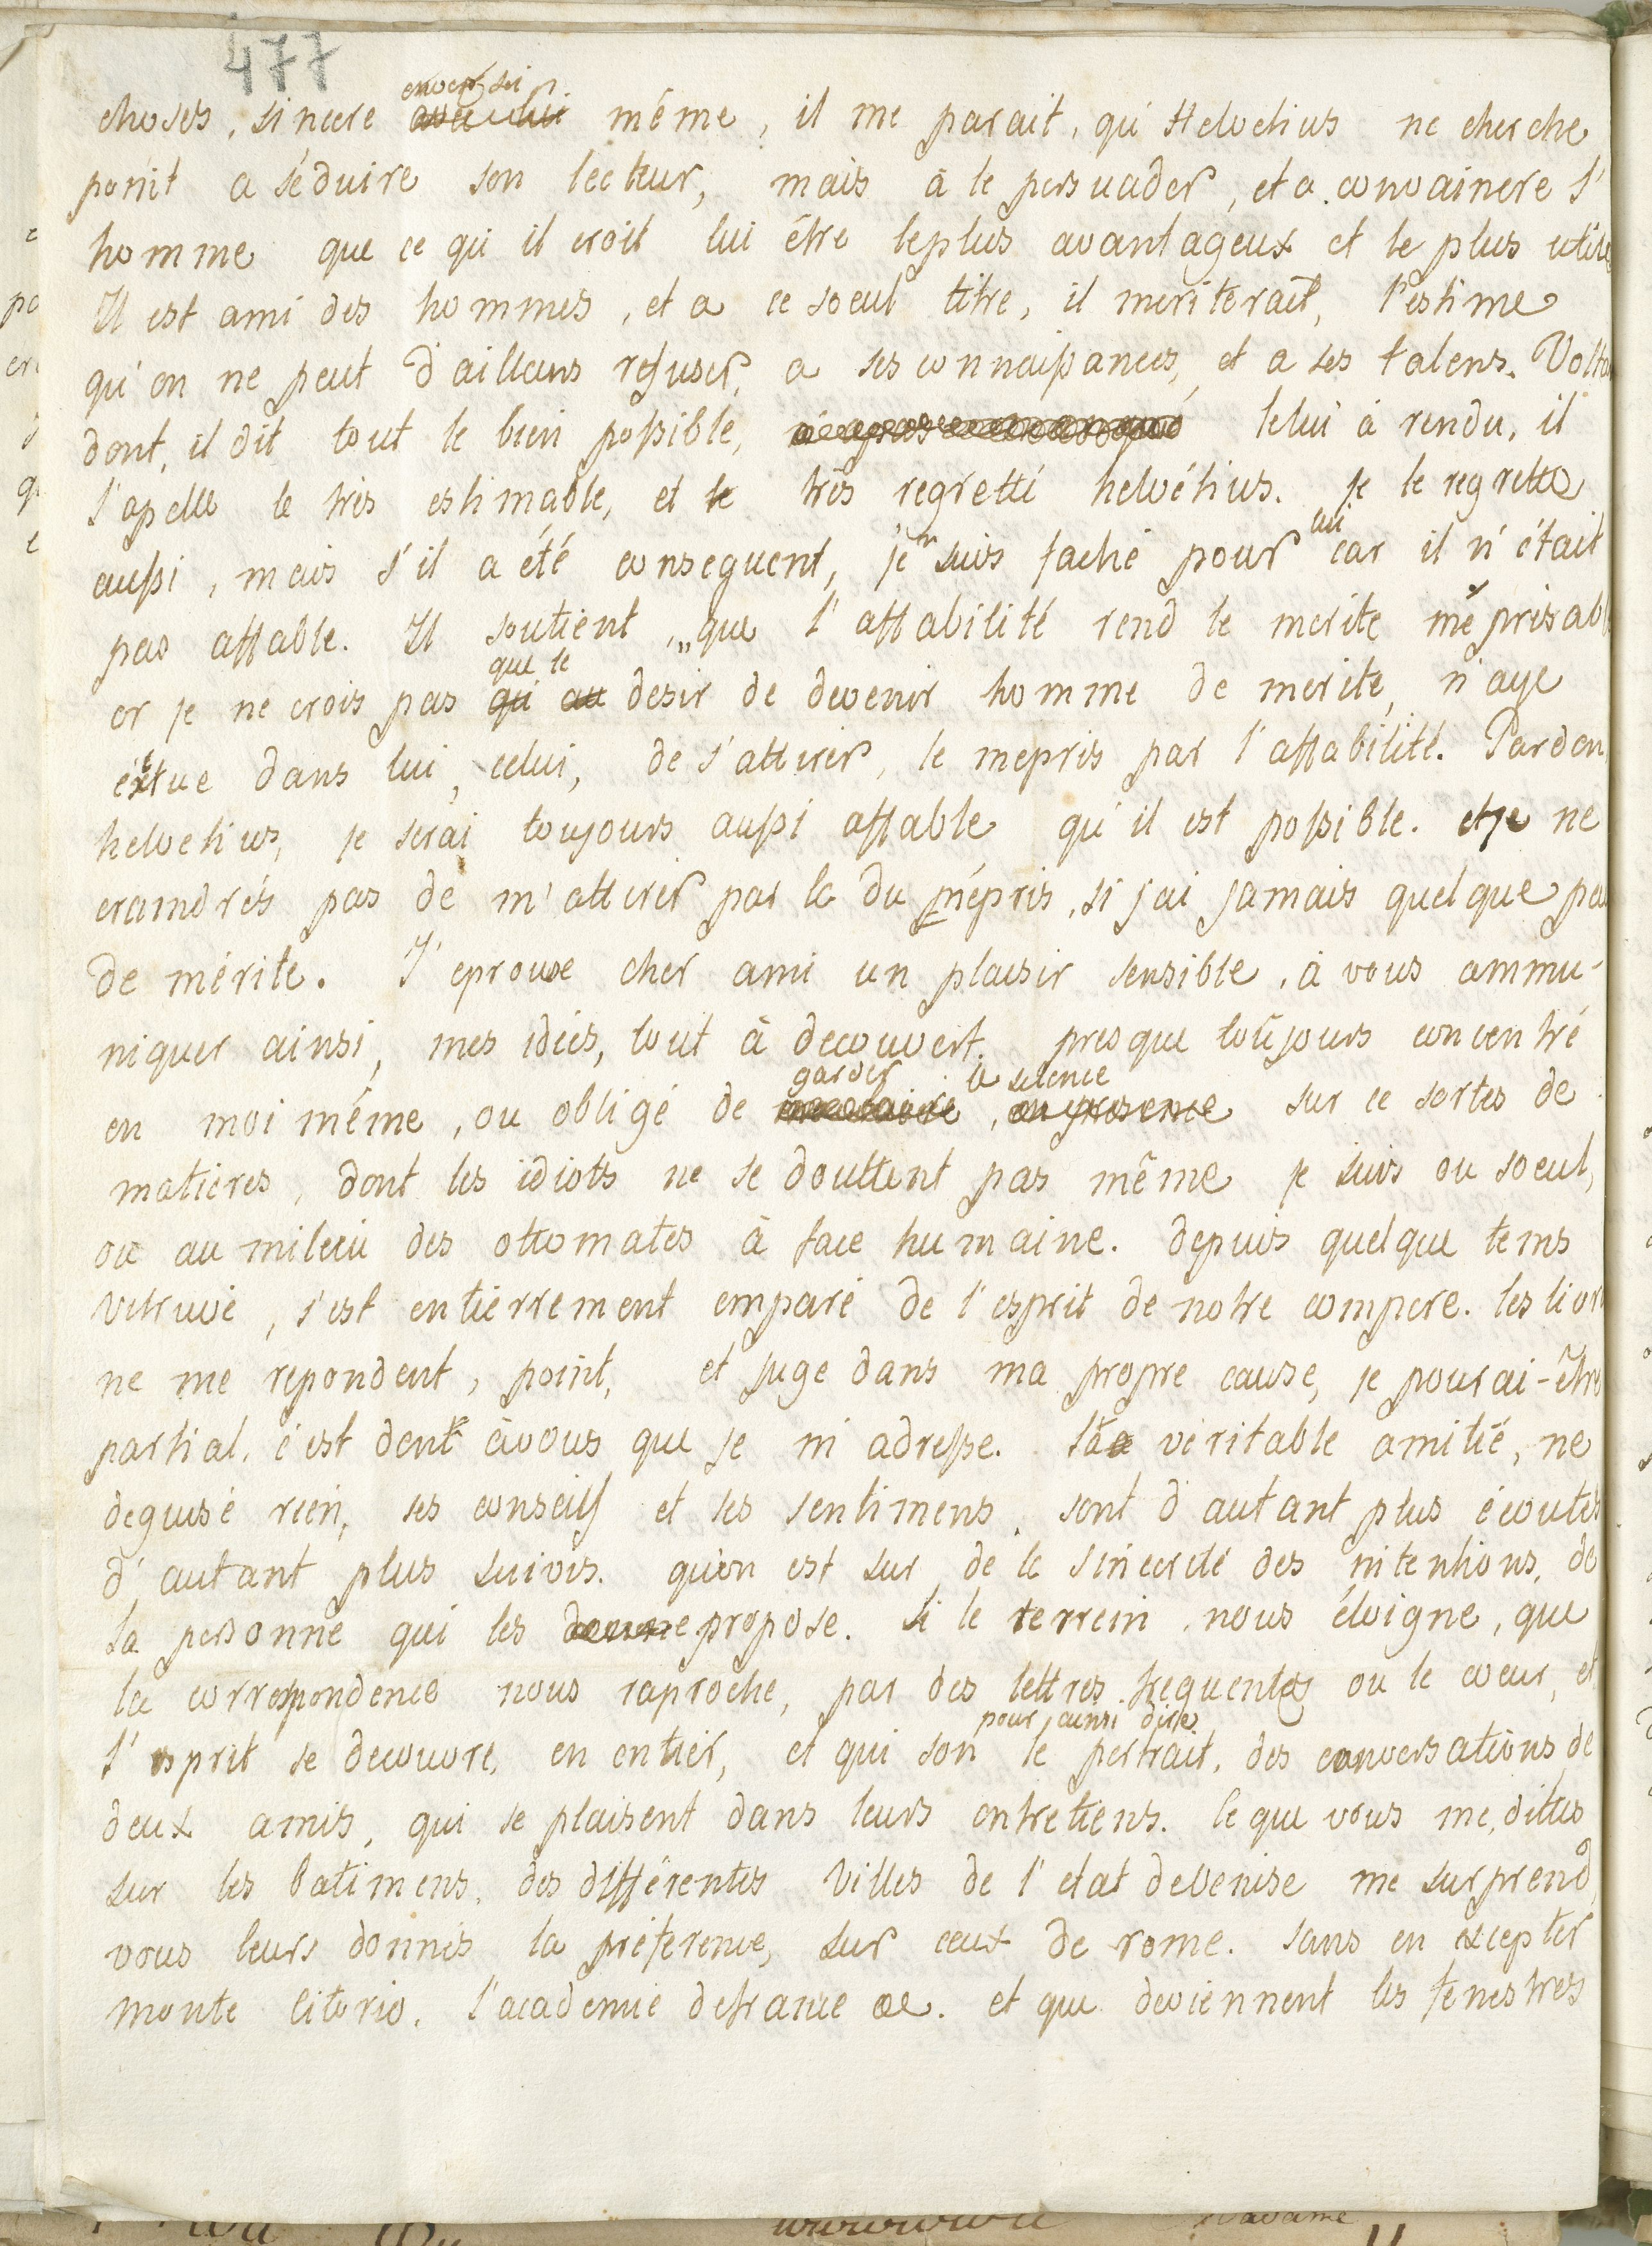 477
choses, sincere envers soi même, il me parait, qu'Helvetius ne cherche
point a séduire son lecteur, mais à le persuader, et a convaincre l'
homme que ce qu'il croit lui être leplus avantageux et le plus utile
Il est ami des hommes, et a ce soeul titre, il meriterait, l'estime
qu'on ne peut d'ailleurs refuser, a ses connaissances, et a ses talens.
dont, il dit tout le bien possible, lelui à rendu, il
l'apelle le très estimable, et le très regretté helvétius. je le regrette
aussi, mais s'il a été consequent, j'en suis faché pour lui car il n'était
pas affable. Il soutient, „que l'affabilité rend le merite méprisable
or je ne crois pas que le desir de devenir homme de merite, n'aye
étue dans lui, celui, de s'attirer, le mepris par l'affabilité. Pardon
helvetius, je serai toujours aussi affable qu'il est possible. et je ne
craindrés pas de m'attirer par la du mépris, si j'ai jamais quelque
de mérite. J'eprouve cher ami un plaisir sensible, à vous ommu-
niquer ainsi, mes idées, tout à decouvert. presque toujours concentré
en moi même, ou obligé de garder le silence sur ce sortes de
matières, dont les idiots ne se douttent pas même je suis ou soeul,
ou au milieu des ottomates à face humaine. depuis quelque tems
vitruve, s'est entierrement emparé de l'esprit de notre compere. les livres
ne me repondent, point, et juge dans ma propre cause, je pourai-être
partial. c'est dont àvous que je m'adresse. la véritable amitié, ne
deguise rien, ses conseils et ses sentimens, sont d'autant plus écoutés
d'autant plus suivis. qu'on est sur de la sincerité des intentions, de
la personne qui les propose. Si le terrein nous éloigne, que
la correspondence nous raproche, par des lettres frequentes ou le coeur, et
l'esprit se decouvre, en entier, et qui son pour ainsi dire le portrait, des conversations de
deux amis, qui se plaisent dans leurs entretiens. Ce que vous me, dittes
sur les batimens, des différentes villes de l'etat devenise me surprend,
vous leurs donnés la préference, sur ceux de rome. sans en excepter
monte citorio, l'academie defrance &c. et que deviennent les fenestres